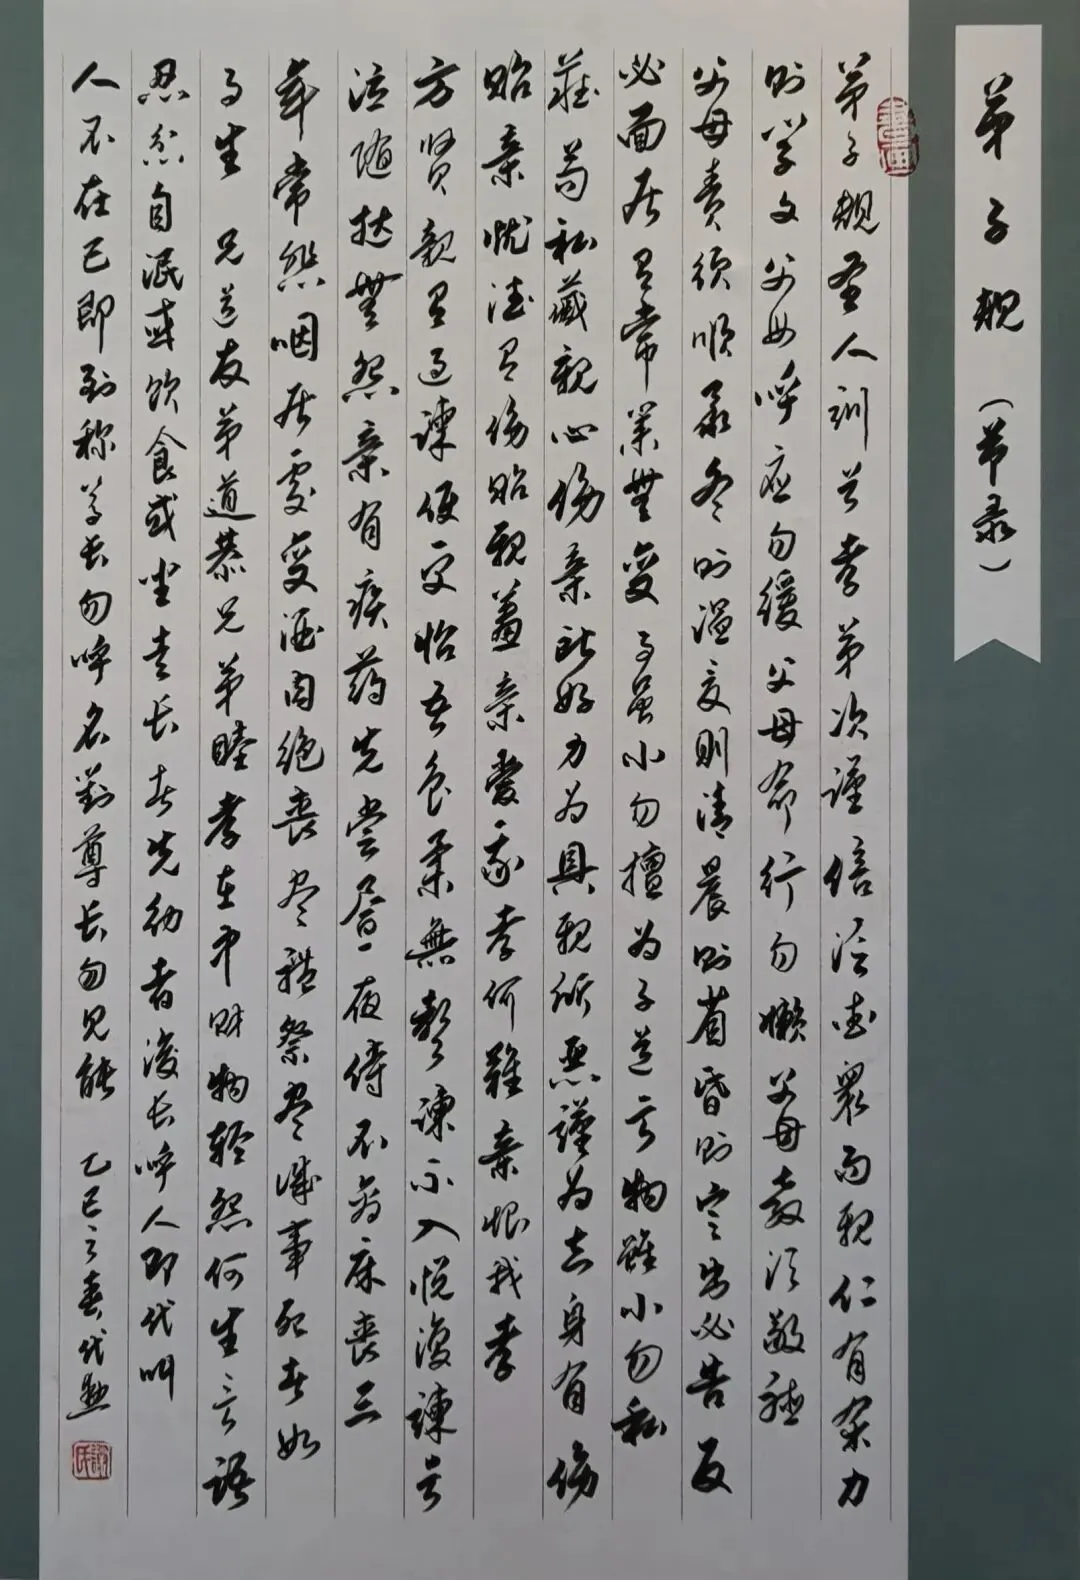 弟子规（节录）
弟子规圣人训首孝弟次谨信泛爱众而亲仁有余力
则学文父母呼应勿缓父母命行勿懒父母教须敬听
父母责须顺承冬则温夏则清晨则省昏则定出必告反
必面居有常业无变事虽小勿擅为子道亏物虽小勿私
藏苟私藏亲心伤亲所好力为具亲所恶谨为去身有伤
贻亲忧德有伤贻亲羞亲爱我孝何难亲恨我孝
方贤亲有过谏使更怡吾色柔吾声谏不入悦复谏号
泣随挞无怨亲有疾药先尝昼夜侍不离床丧三
年常悲咽居处变酒肉绝丧尽礼祭尽诚事死者如
事生 兄道友弟道恭兄弟睦孝在中财物轻怨何生言语
忍忿自泯或饮食或坐走长者先幼者后长呼人即代叫
人不在己即到称尊长勿呼名对尊长勿见能 乙巳之春